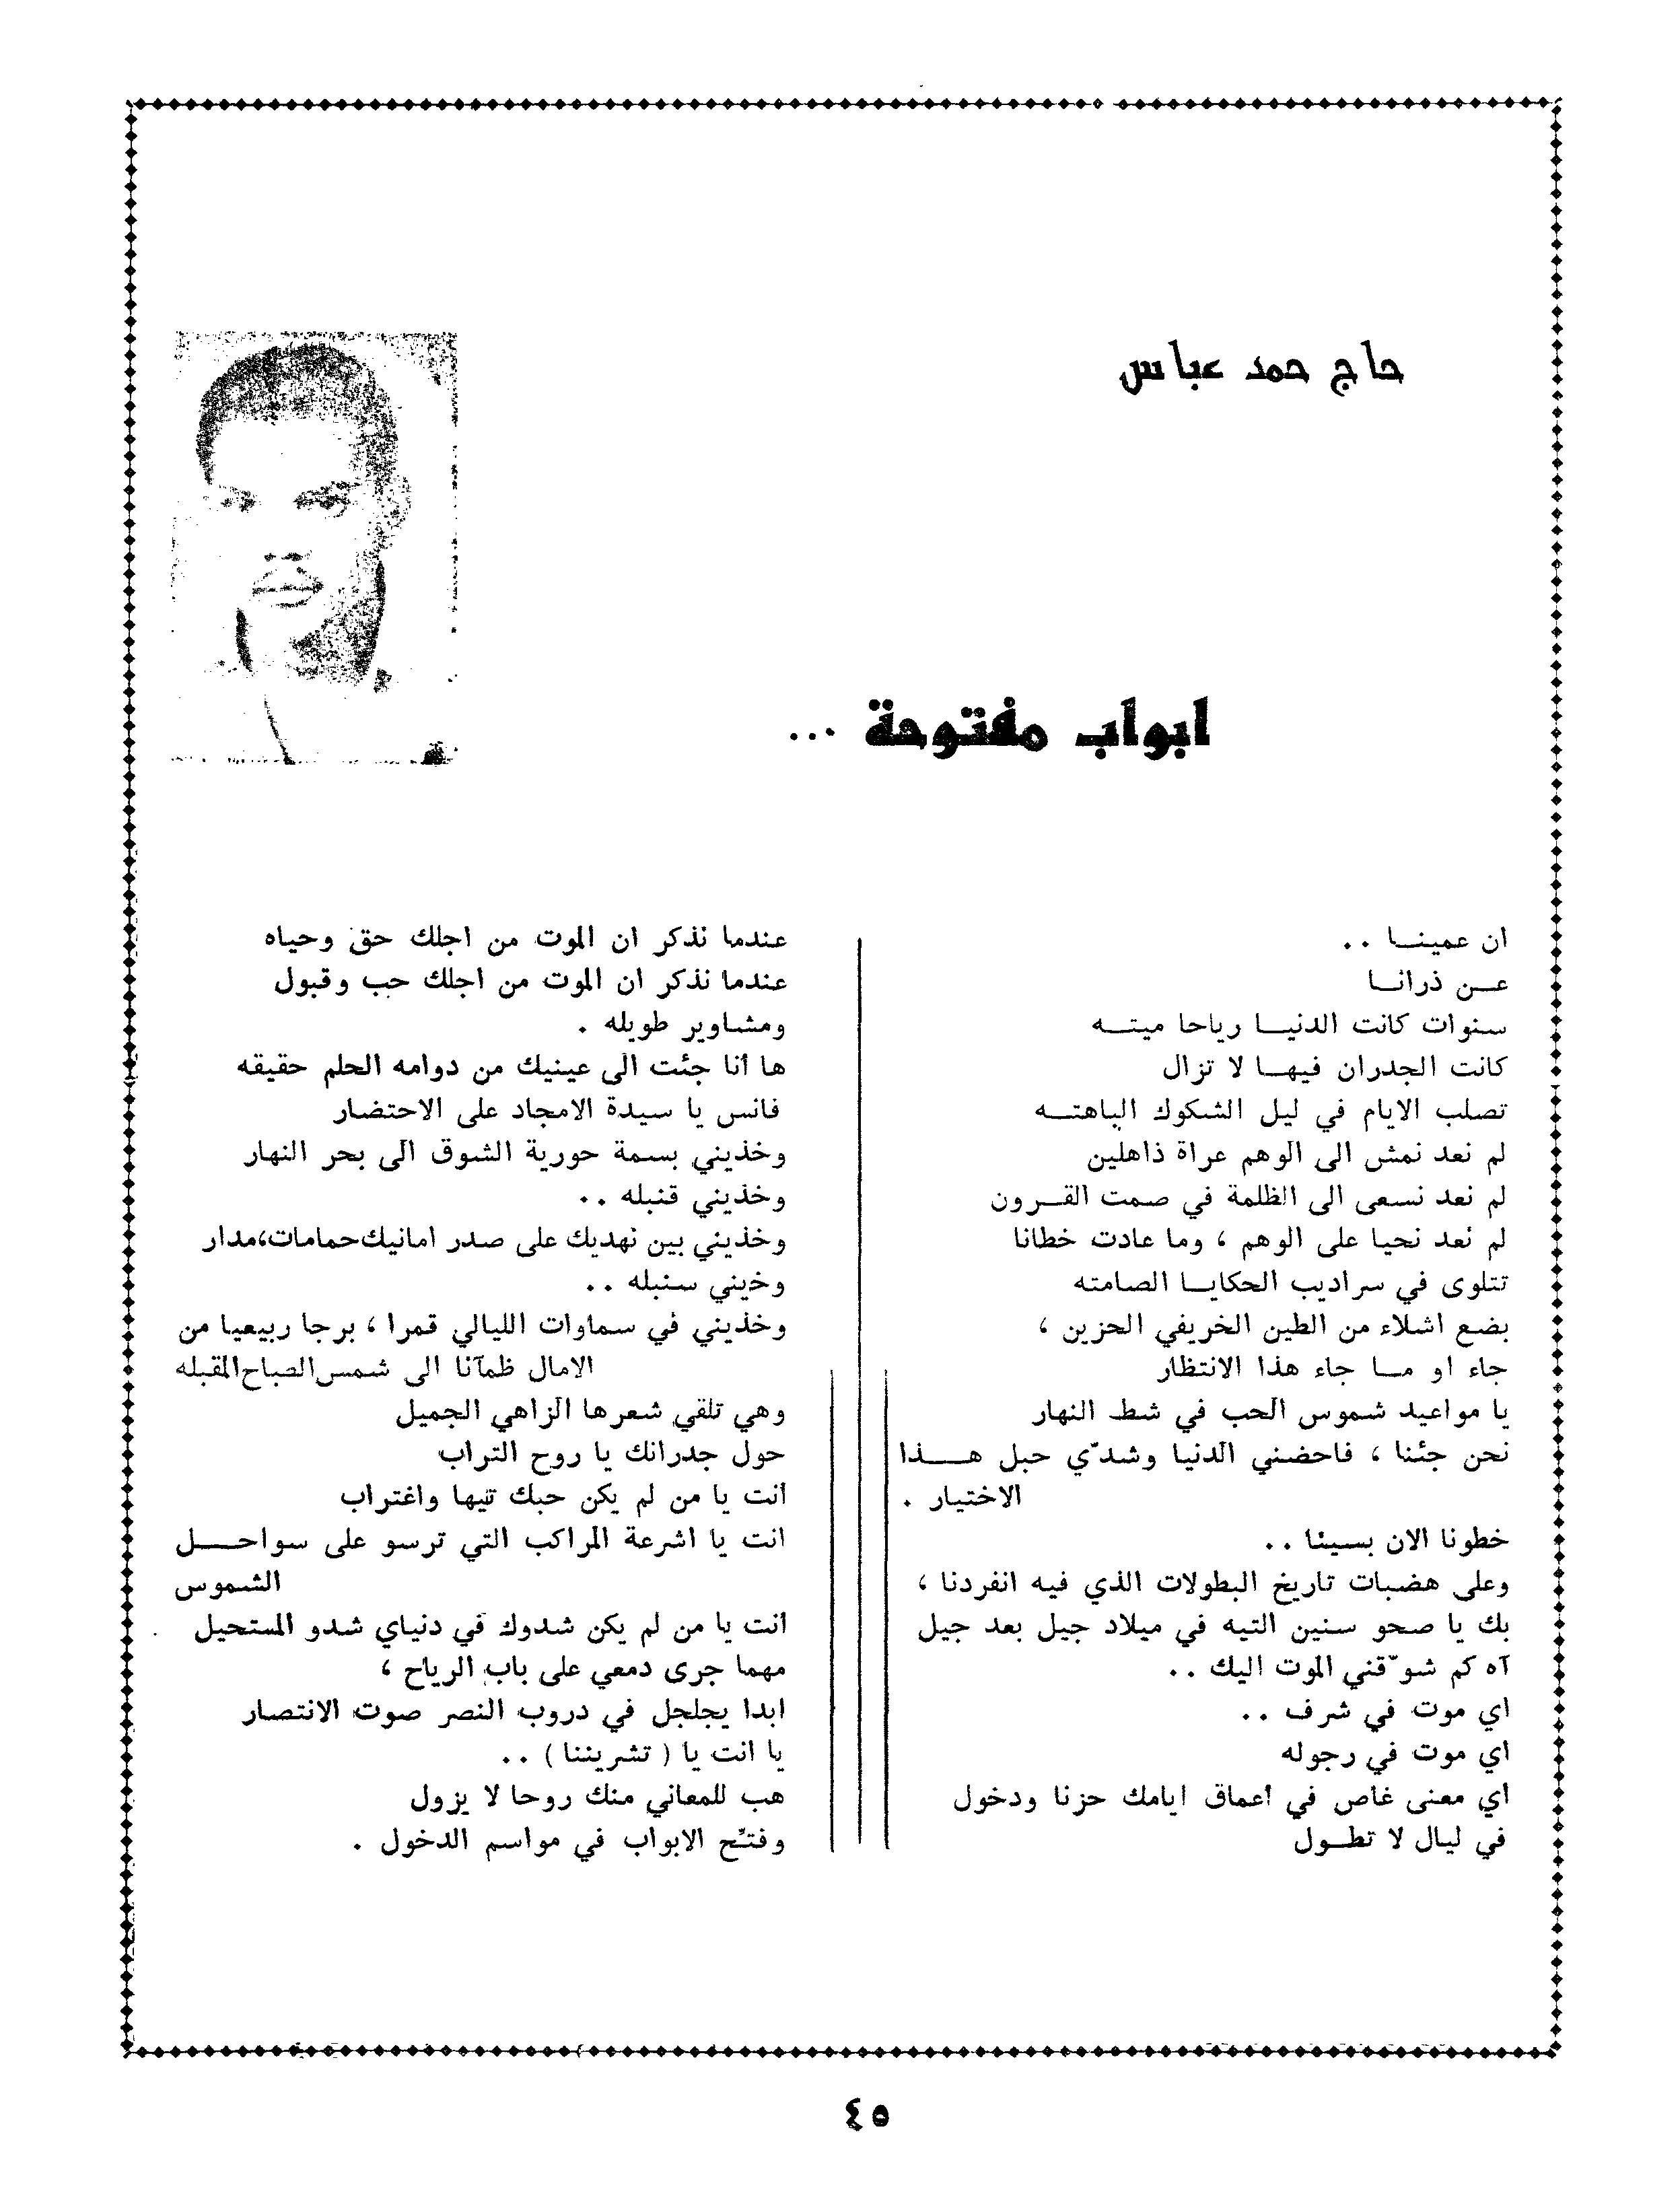 حاج حمد عباس
ابواب مفتوحة ...
ان عمينـا ..
عـن ذرانـا
سنوات كانت الدنيـا رياحا ميتـه
كانت الجدران فيهـا لا تزال
تصلب الايام في ليل الشكوك الباهتـه
لم نعد نمش الى الوهم عراة ذاهلين
لم نعد نسعى الى الظلمة في صمت القـرون
لم نعد نحيا على الوهم ، وما عادت خطانا
تتلوى في سراديب الحكايـا الصامته
بضع اشلاء من الطين الخريفي الحزين ،
جاء او مـا جاء هذا الانتظار
يا مواعيد شموس الحب في شط النهار
نحن جئنا ، فاحضني الدنيا وشدّي حبل هـــذا
الاختيار .
خطونا الان بسيئا ..
وعلى هضبات تاريخ البطولات الذي فيه انفردنا ،
بك يا صحو سنين التيه في ميلاد جيل بعد جيل
آه كم شوّقني الموت اليك ..
اي موت في شرف ..
اي موت في رجوله
اي معنى غاص في أعماق ايامك حزنا ودخول
في ليال لا تطـول
عندما نذكر ان الموت من اجلك حق وحياه
عندما نذكر ان الموت من اجلك حب وقبول
ومشاوير طويله .
ها أنا جئت الى عينيك من دوامه الحلم حقيقه
فانس يا سيدة الامجاد على الاحتضار
وخذيني بسمة حورية الشوق الى بحر النهار
وخذيني قنبله ..
وخذيني بين نهديك على صدر امانيك حمامات، مدار
وخيني سنبله ..
وخذيني في سماوات الليالي قمرا ، برجا ربيعيا من
الامال ظمآنا الى شمس الصباح المقبله
وهي تلقي شعرها الزاهي الجميل
حول جدرانك يا روح التراب
أنت يا من لم يكن حبك تيها واغتراب
انت يا اشرعة المراكب التي ترسو على سواحـــل
الشموس
أنت يا من لم يكن شدوك في دنياي شدو المستحيل
مهما جرى دمعي على باب الرياح ،
ابدا يجلجل في دروب النصر صوت الانتصار
يا انت يا ( تشريننا ) ..
هب للمعاني منك روحا لا يزول
وفتّح الابواب في مواسم الدخول .
٤٥